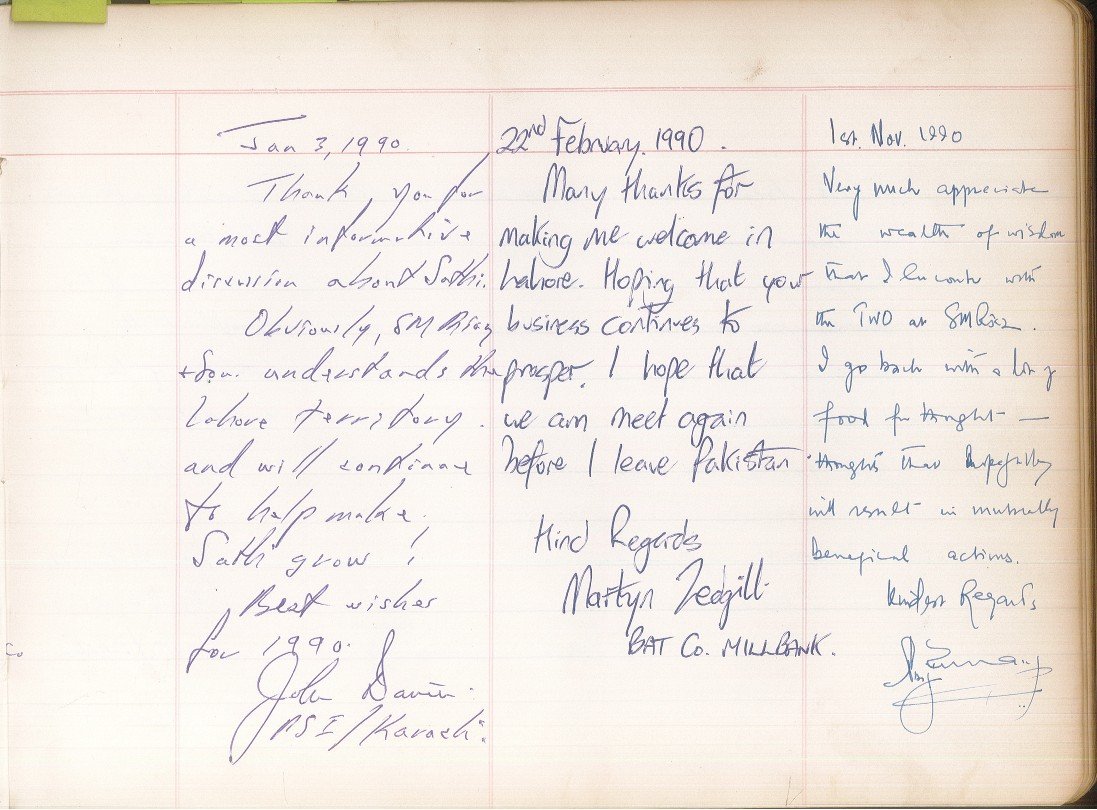 Jan 3, 1990.
Thank you for
a most informative
discussion about Sathi.
Obviously, SM Riaz
+ Son. understands the
Lahore territory.
and will continue
to help make
Sathi grow!
Best wishes
for 1990.
John Davis
PSI/Karachi.
22nd February. 1990.
Many thanks for
making me welcome in
Lahore. Hoping that your
business continues to
prosper, I hope that
we can meet again
before I leave Pakistan
Kind Regards
Martyn
BAT Co. MILLBANK.
1st. Nov. 1990
Very much appreciate
the wealth of wisdom
that I encounter with
the TWO at SM Riaz.
I go back with a lot of
food for thought —
thoughts that hopefully
will result in mutually
benefical actions.
Kindest Regards